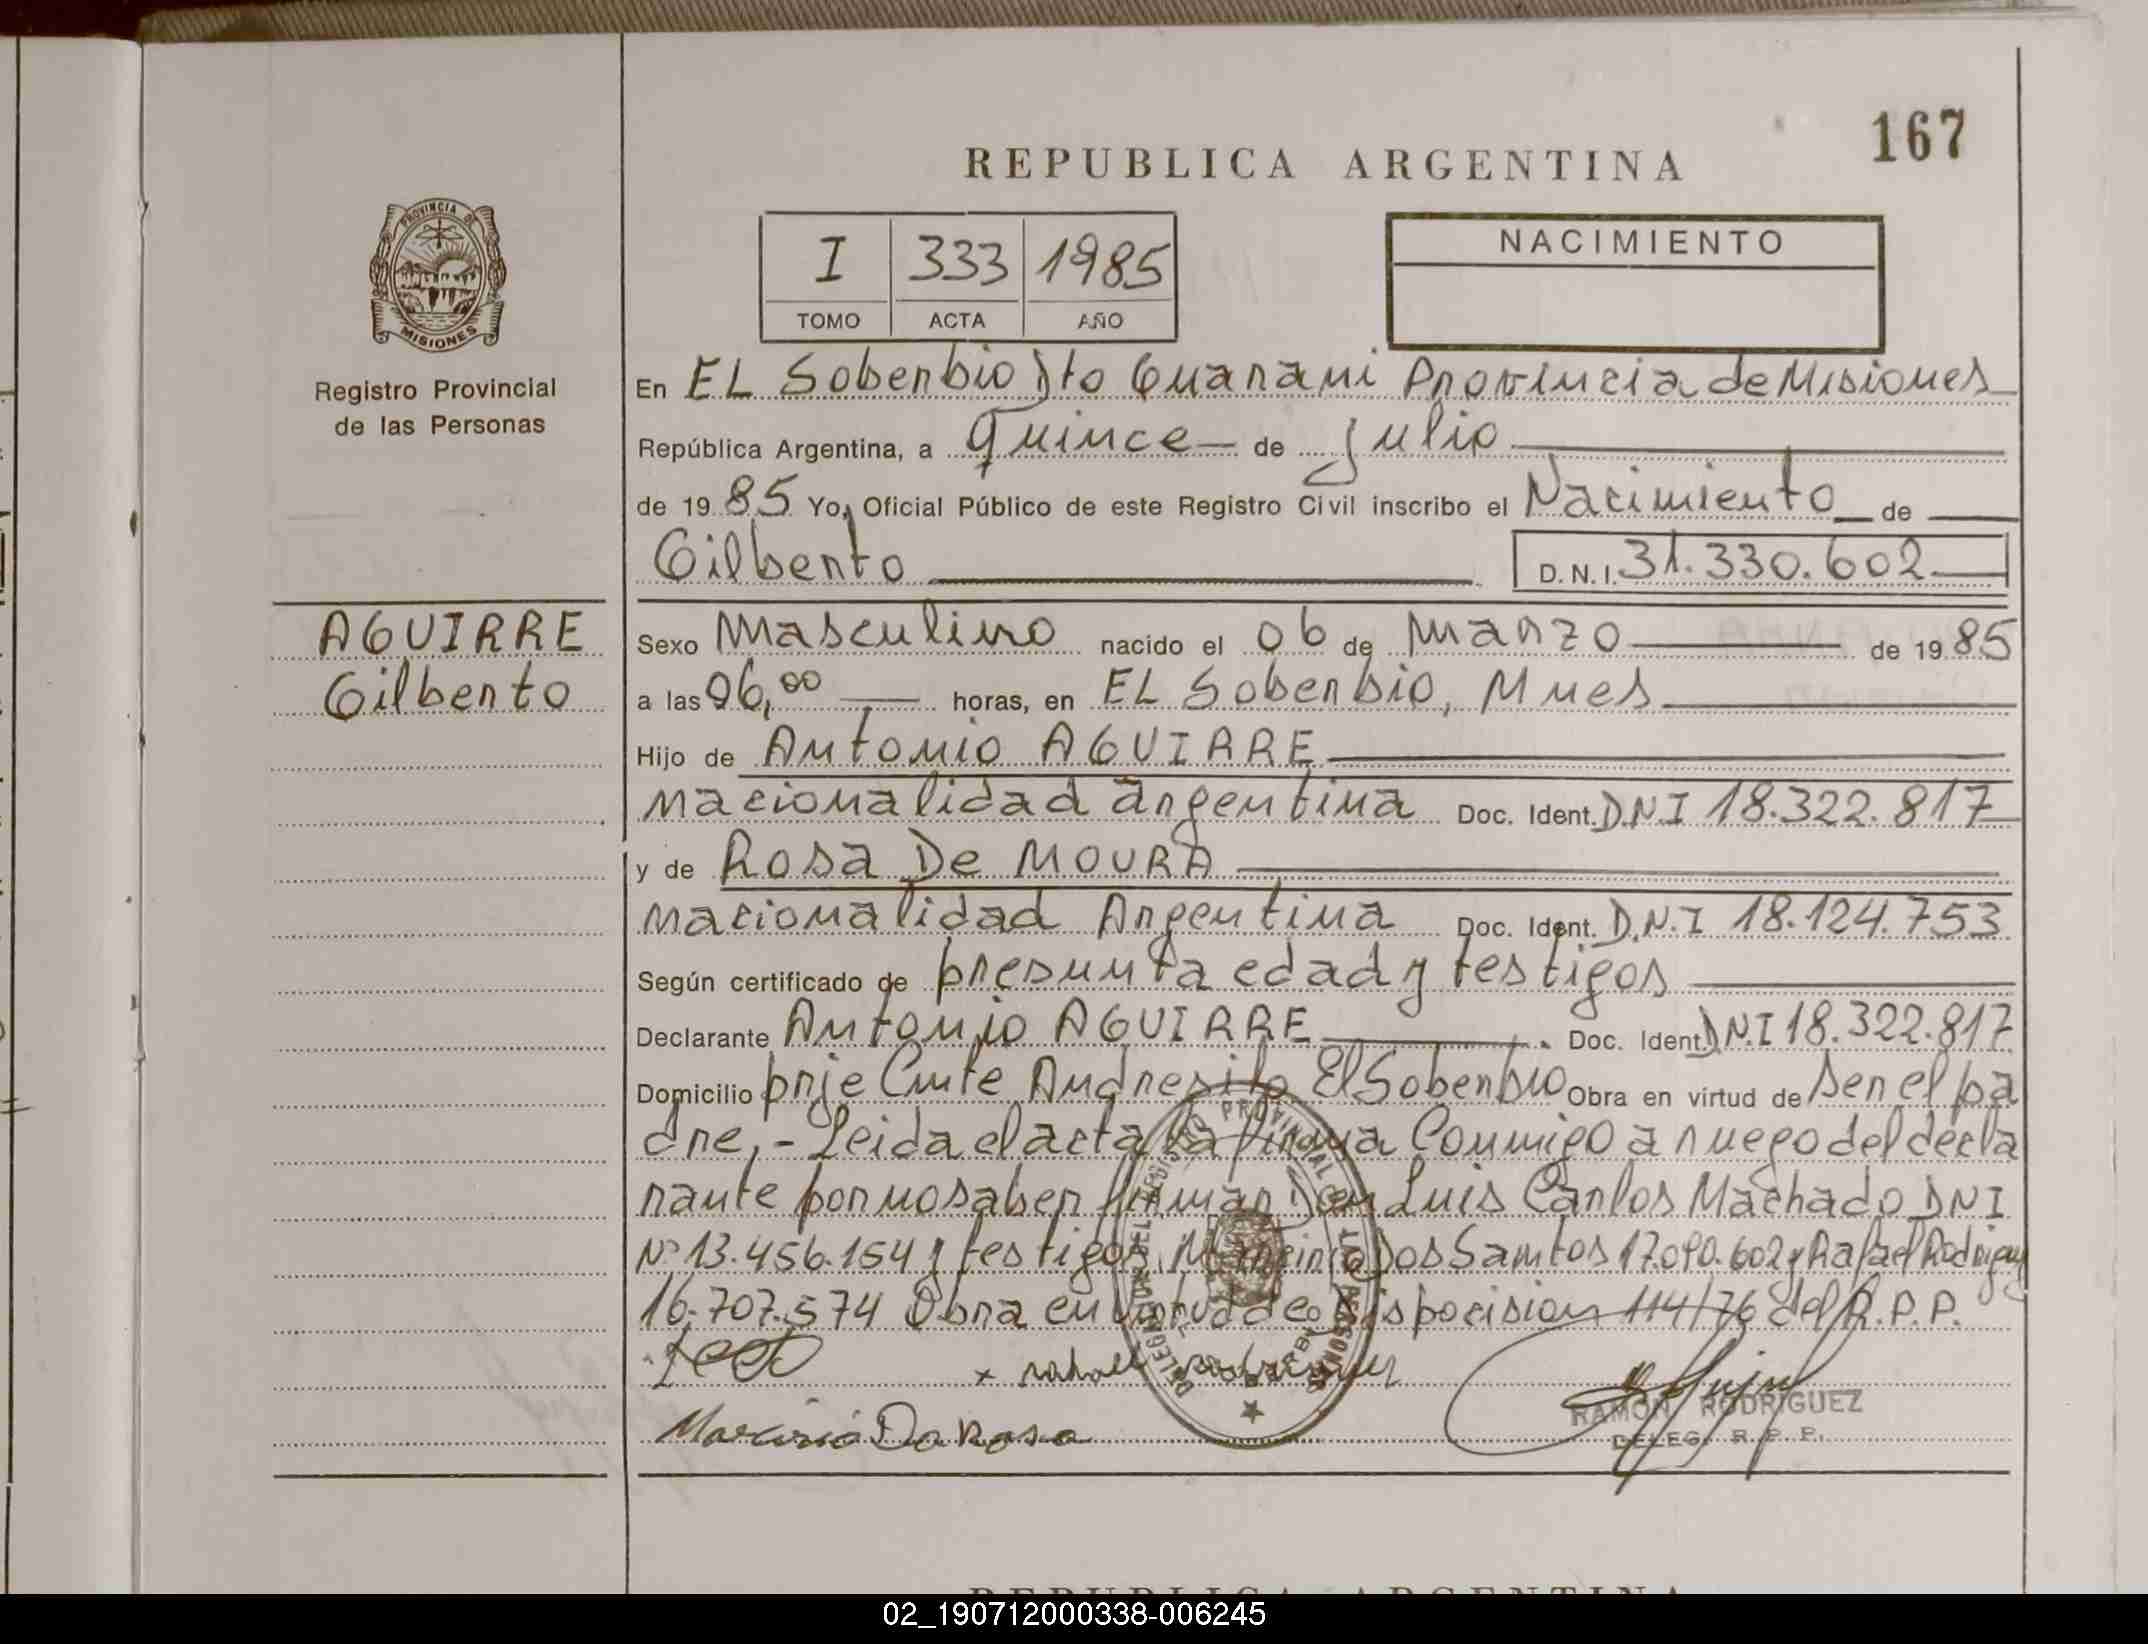 167
REPUBLICA ARGENTINA
PROVINCIA DE
MISIONES
Registro Provincial
de las Personas
I 333 1985
TOMO ACTA AÑO
NACIMIENTO
En EL Soberbio Dto Guarani Provincia de Misiones
República Argentina, a Quince de Julio
de 19 85 Yo, Oficial Público de este Registro Civil inscribo el Nacimiento de
Gilberto D.N.I. 31.330.602
AGUIRRE
Gilberto
Sexo Masculino nacido el 06 de Marzo de 19 85
a las 06,00 horas, en EL Soberbio, Mnes
Hijo de Antonio AGUIRRE
nacionalidad argentina Doc. Ident. D.N.I 18.322.817
y de Rosa De MOURA
nacionalidad Argentina Doc. Ident. D.N.I 18.124.753
Según certificado de presunta edad y testigos
Declarante Antonio AGUIRRE Doc. Ident. D.N.I 18.322.817
Domicilio prje Cmte Andresito El Soberbio Obra en virtud de ser el pa
dre,- Leida el acta la firma Conmigo a ruego del decla
rante por no saber firmar Don Luis Carlos Machado DNI
Nº 13.456.154 y testigos, Dos Santos 17.090.602 y Rafael Rodriguez
16.707.574 Obra en virtud de Disposicion 114/76 del R.P.P.
x
Da Rosa
RAMON RODRIGUEZ
DELEG. R. P. P.
REPUBLICA ARGENTINA
02_190712000338-006245